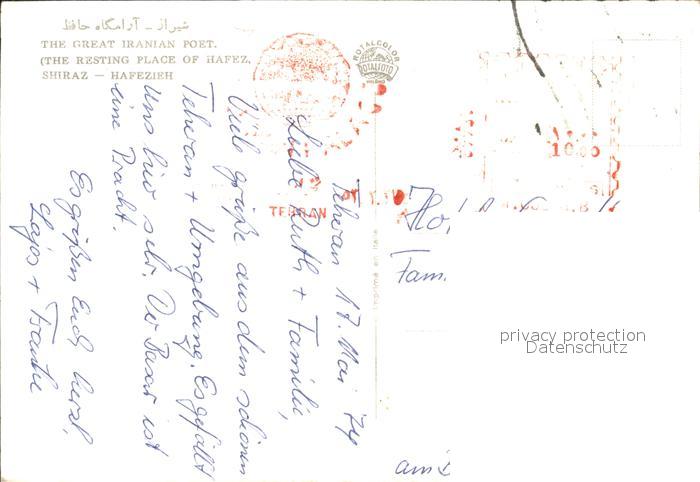 شیراز ـ آرامگاه حافظ
THE GREAT IRANIAN POET.
(THE RESTING PLACE OF HAFEZ,
SHIRAZ — HAFEZIEH
ROTALCOLOR
ROTALFOTO
MILANO
TEHRAN
10.00
Imprimé en Italie
Tehran 17. Mai 74
Liebe Ruth + Familie,
Viele grüße aus dem schönen
Tehran + Umgebung. Es gefällt
uns hier sehr. Der Basar ist
eine Pracht.
Es grüßen Euch herzl.
Fam.
privacy protection
Datenschutz